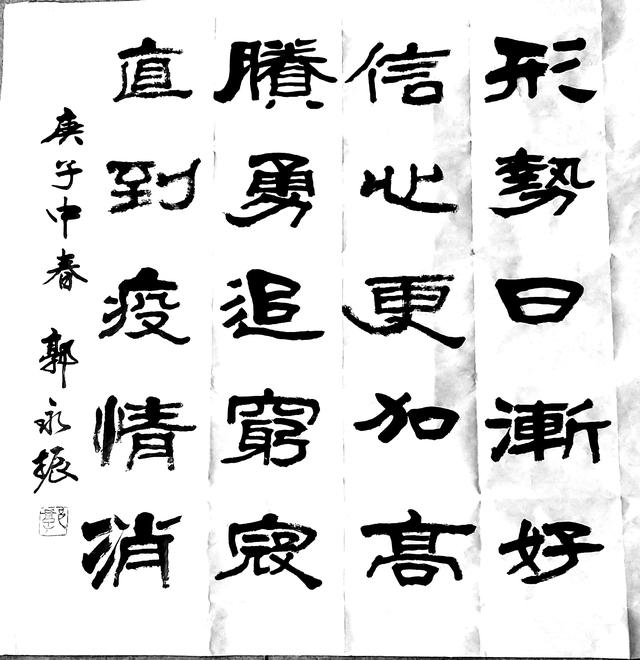 形勢日漸好
信心更加高
賸勇追窮寇
直到疫情消
庚子中春 郭永振